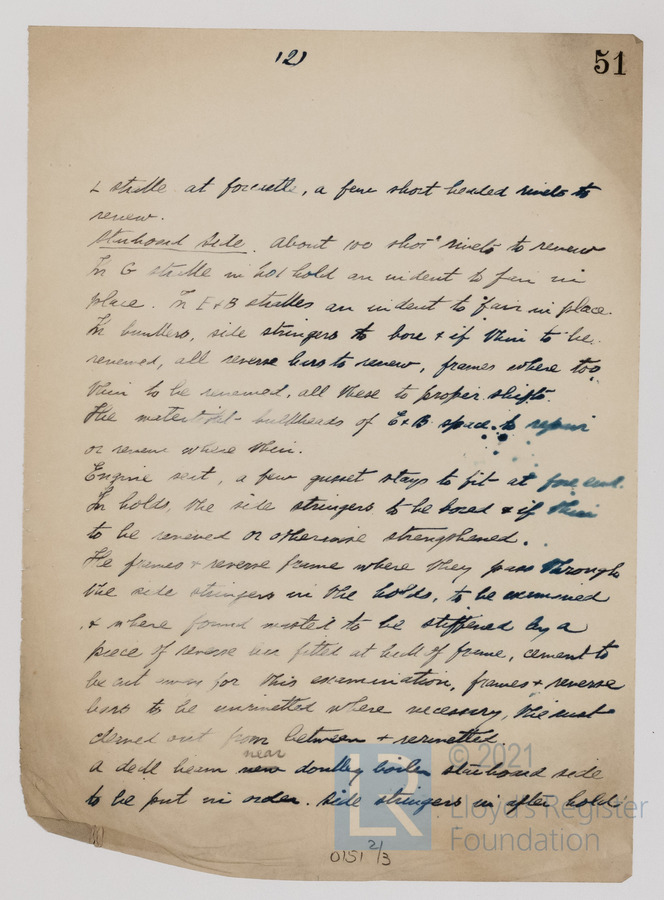 (2)
51
L strake at forecastle, a few short headed rivets to
renew.
Starboard Side. About 100 shot rivets to renew
In G strake in hold an indent to fair in
place. In E & B strakes an indent to fair in place.
In bunkers, side stringers to bore & if thin to be
renewed, all reverse bars to renew, frames where too
thin to be renewed, all these to proper shifts.
The watertight bulkheads of E & B space to repair
or renew where thin.
Engine seat, a few gusset stays to fit at fore end.
In holds, the side stringers to be bored & if thin
to be renewed or otherwise strengthened.
The frames & reverse frame where they pass through
the side stringers in the holds, to be examined
& where found wasted to be stiffened by a
piece of reverse bar fitted at back of frame, cement to
be cut away for this examination, frames & reverse
bars to be unrivetted where necessary, the rust
cleaned out from between & rerivetted.
near
A deck beam new donkey boiler starboard side
to be put in order. Side stringers in after hold
0151 2/3
© 2021
Lloyd's Register
Foundation
LR